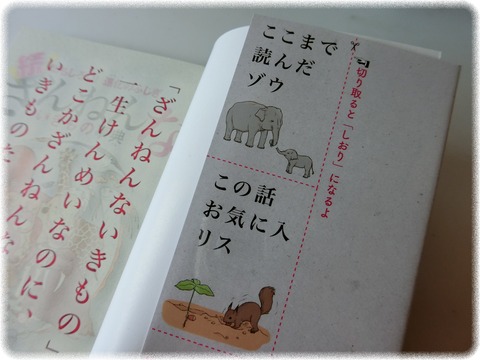 切り取ると「しおり」になるよ
ここまで
読んだ
ゾウ
この話
お気に入
リス
「ざんねんないきもの」
一生けんめいなのに、
どこかざんねんな
いきものた